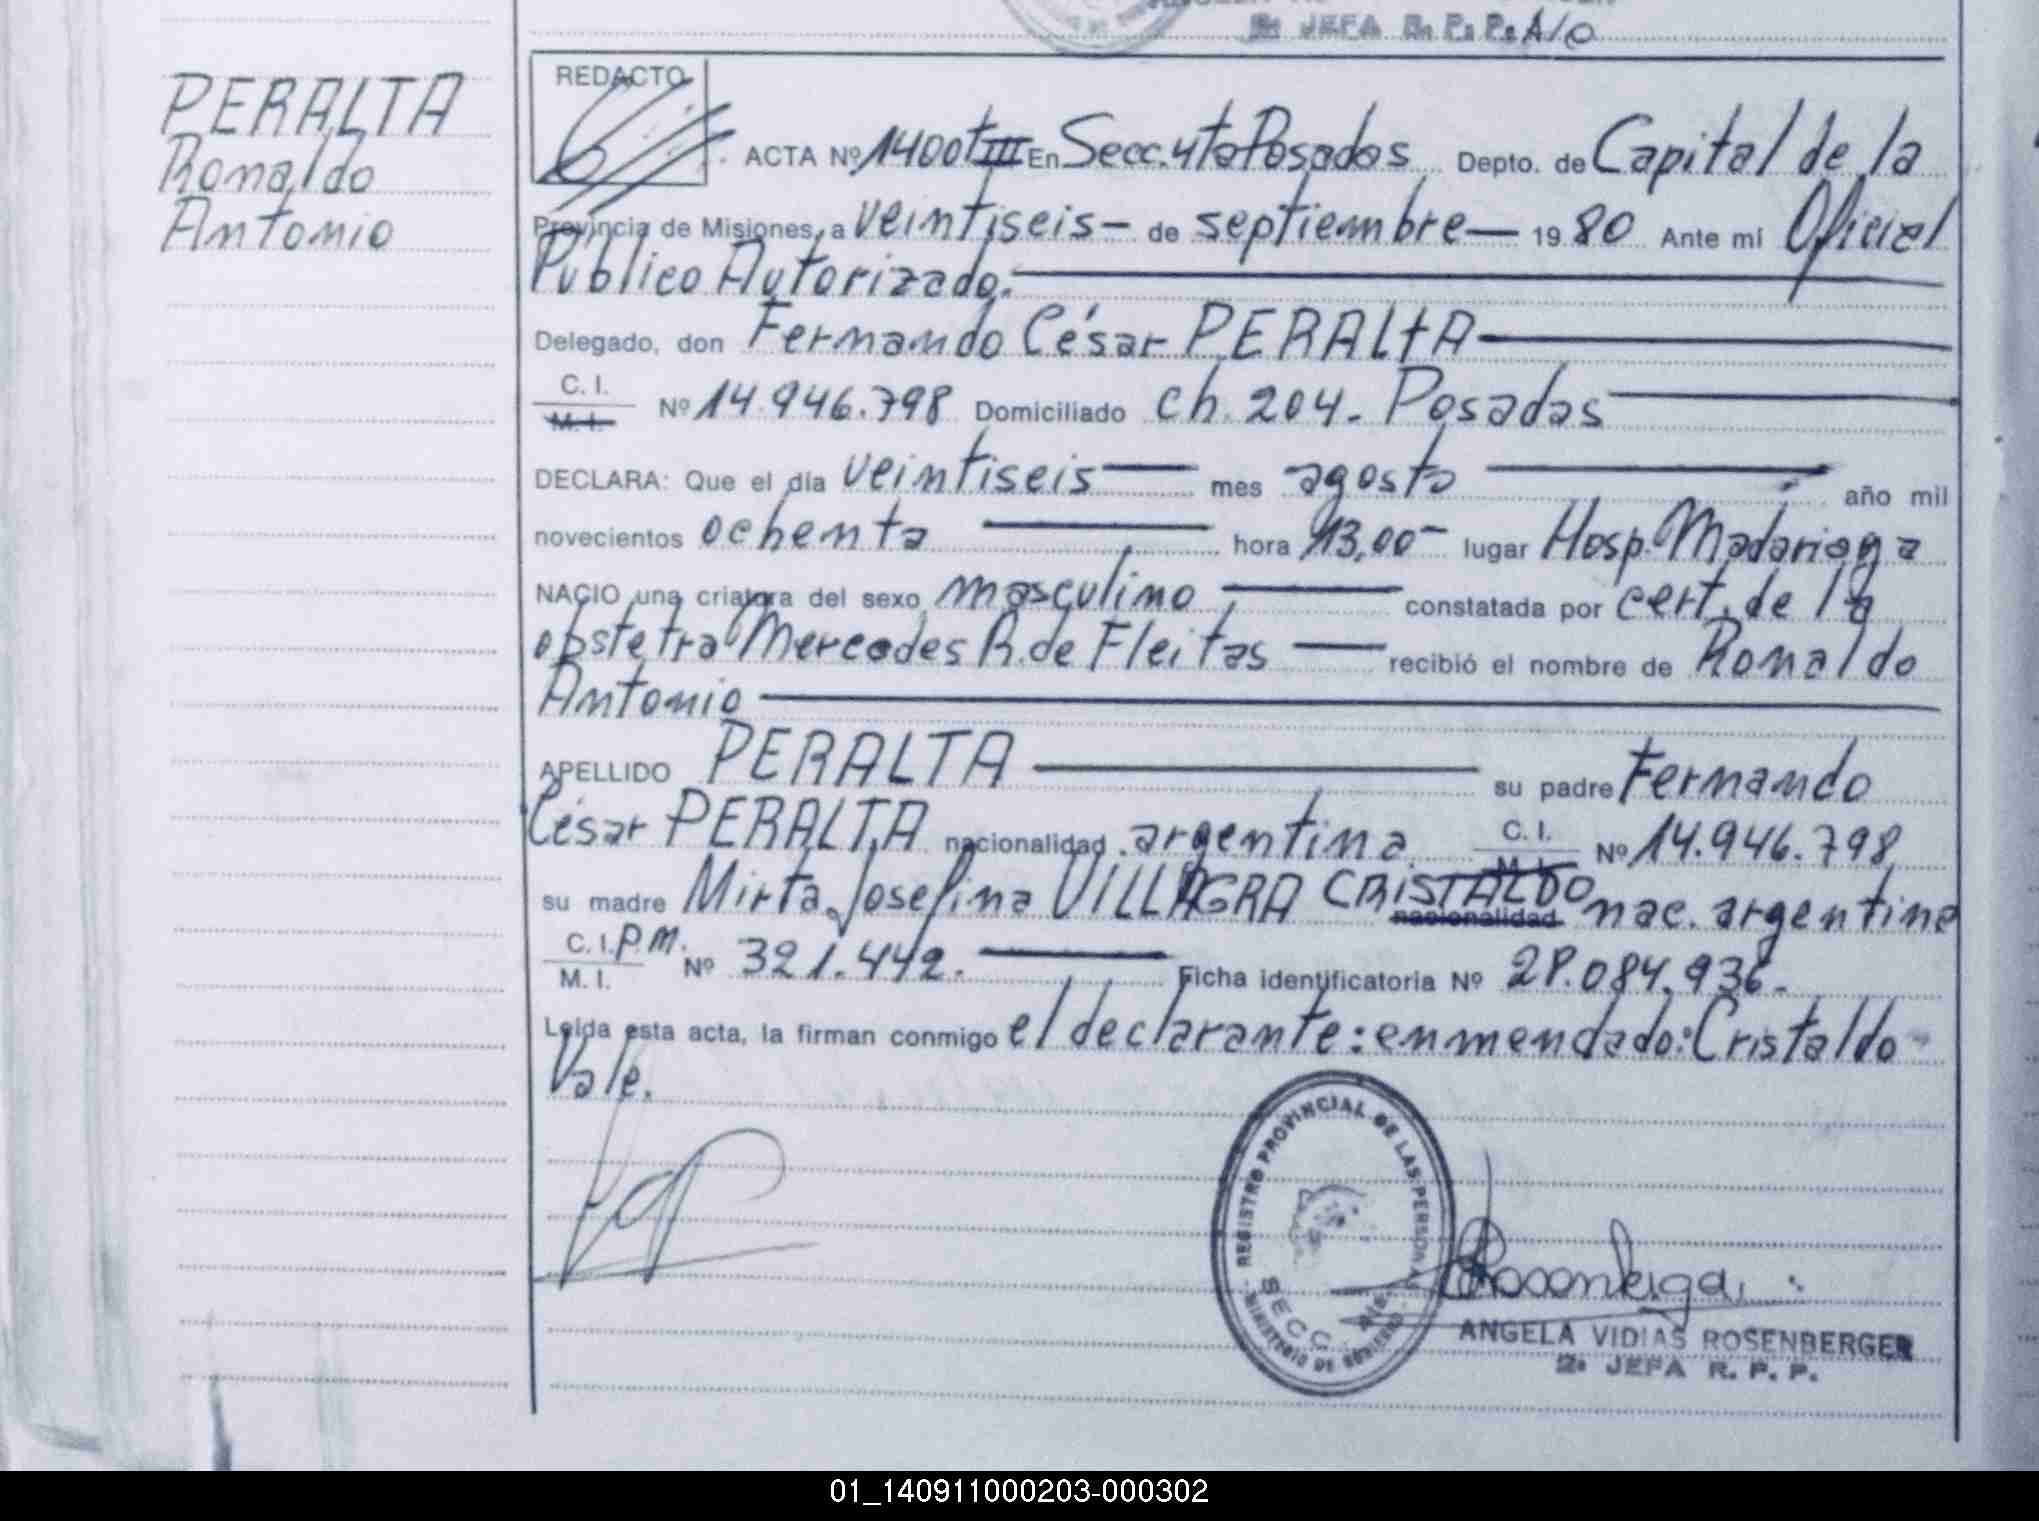 2º JEFA R. P. P. A/O
PERALTA
Ronaldo
Antonio
REDACTO
ACTA Nº 1400 tIII En Secc. 4ta Posadas Depto. de Capital de la
Provincia de Misiones, a veintiseis — de septiembre — 19 80 Ante mí Oficial
Público Autorizado.
Delegado, don Fernando César PERALTA
C. I.
M. I.
Nº 14.946.798 Domiciliado ch. 204. Posadas
DECLARA: Que el día veintiseis mes agosto año mil
novecientos ochenta hora 13,00 lugar Hosp. Madariaga
NACIO una criatura del sexo masculino constatada por cert. de la
obstetra Mercedes R. de Fleitas recibió el nombre de Ronaldo
Antonio
APELLIDO PERALTA su padre Fernando
César PERALTA nacionalidad argentina C. I. M. I. Nº 14.946.798
su madre Mirta Josefina VILLAGRA CRISTALDO nacionalidad nac. argentina
C. I. p.m. M. I. Nº 321.442. Ficha identificatoria Nº 28.084.936.-
Leída esta acta, la firman conmigo el declarante: enmendado: Cristaldo
Vale.
REGISTRO PROVINCIAL DE LAS PERSONAS
SECC.
MINISTERIO DE GOBIERNO
ANGELA VIDIAS ROSENBERGER
2º JEFA R. P. P.
01_140911000203-000302